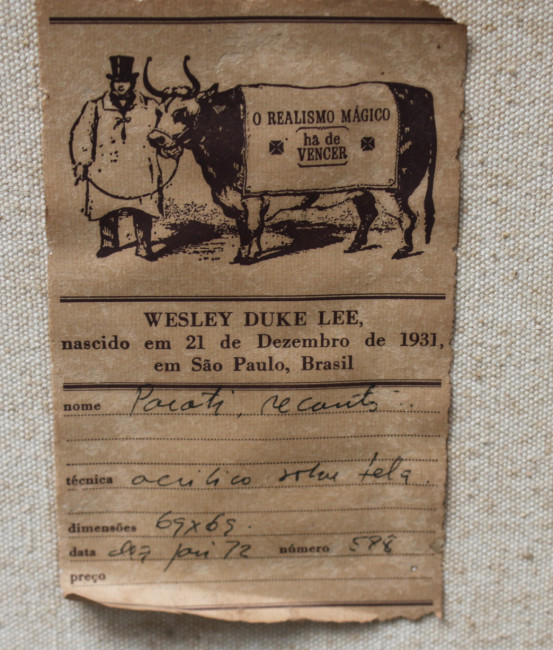 O REALISMO MÁGICO
ha de
VENCER
WESLEY DUKE LEE,
nascido em 21 de Dezembro de 1931,
em São Paulo, Brasil
nome Parati, recanto..
técnica acrilico sobre tela.
dimensões 69x69.
data dez jan 72 número 598
preço